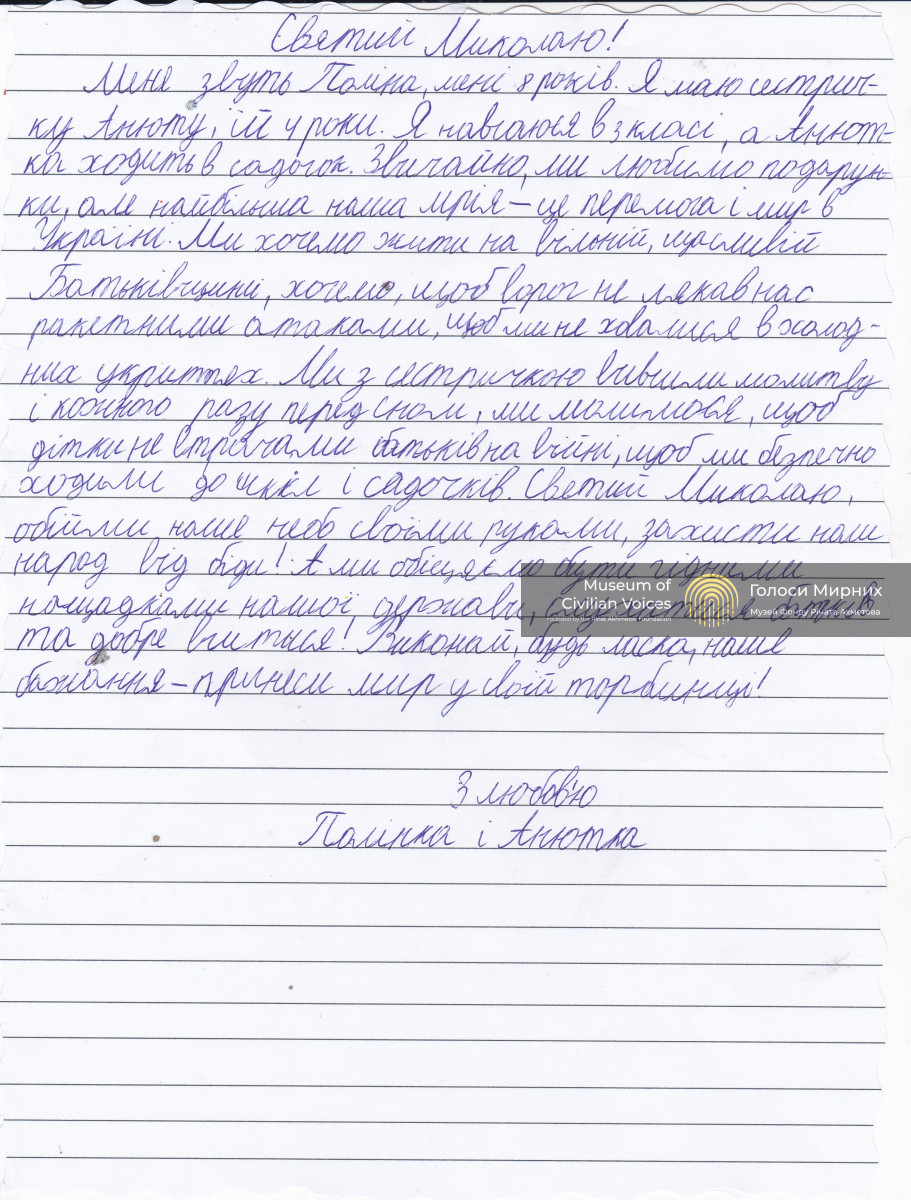 Святий Миколаю!
Мене звуть Поліна, мені 8 років. Я маю сестрич-
ку Анюту, їй 4 роки. Я навчаюся в 3 класі, а Анют-
ка ходить в садочок. Звичайно, ми любимо подарун-
ки, але найбільша наша мрія – це перемога і мир в
Україні. Ми хочемо жити на вільній, щасливій
Батьківщині, хочемо, щоб ворог не лякав нас
ракетними атаками, щоб ми не ховалися в холод-
них укриттях. Ми з сестричкою вивчили молитву
і кожного разу перед сном, ми молимося, щоб
дітки не втрачали батьків на війні, щоб ми безпечно
ходили до шкіл і садочків. Святий Миколаю,
обійми наше небо своїми руками, захисти наш
народ від біди! А ми обіцяємо бути гідними
нащадками нашої держави, слухатися батьків
та добре вчиться! Виконай, будь ласка, наше
бажання – принеси мир у своїй торбинці!
З любов'ю
Полінка і Анютка
Museum of
Civilian Voices
Founded by the Rinat Akhmetov Foundation
Голоси Мирних
Музей Фонду Ріната Ахметова